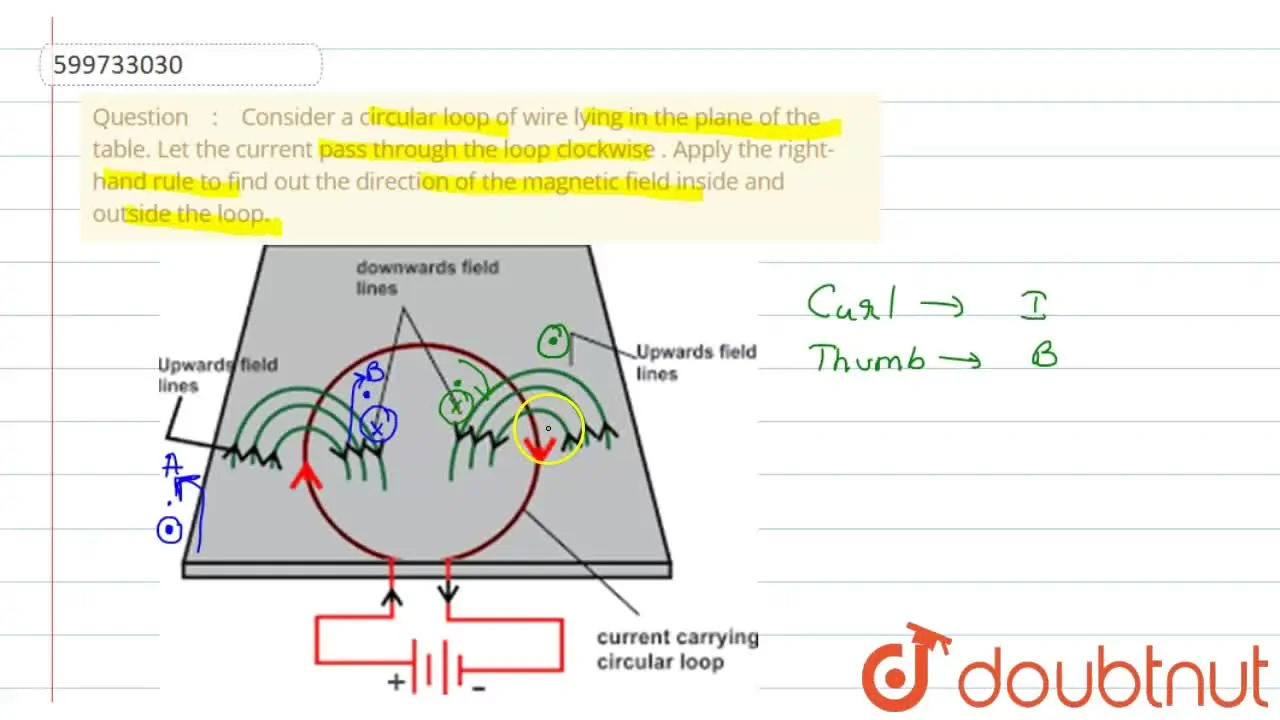 599733030
Question : Consider a circular loop of wire lying in the plane of the
table. Let the current pass through the loop clockwise . Apply the right-
hand rule to find out the direction of the magnetic field inside and
outside the loop.
downwards field
lines
Upwards field
lines
Upwards field
lines
B
x
x
A
Curl → I
Thumb → B
current carrying
circular loop
+
-
doubtnut